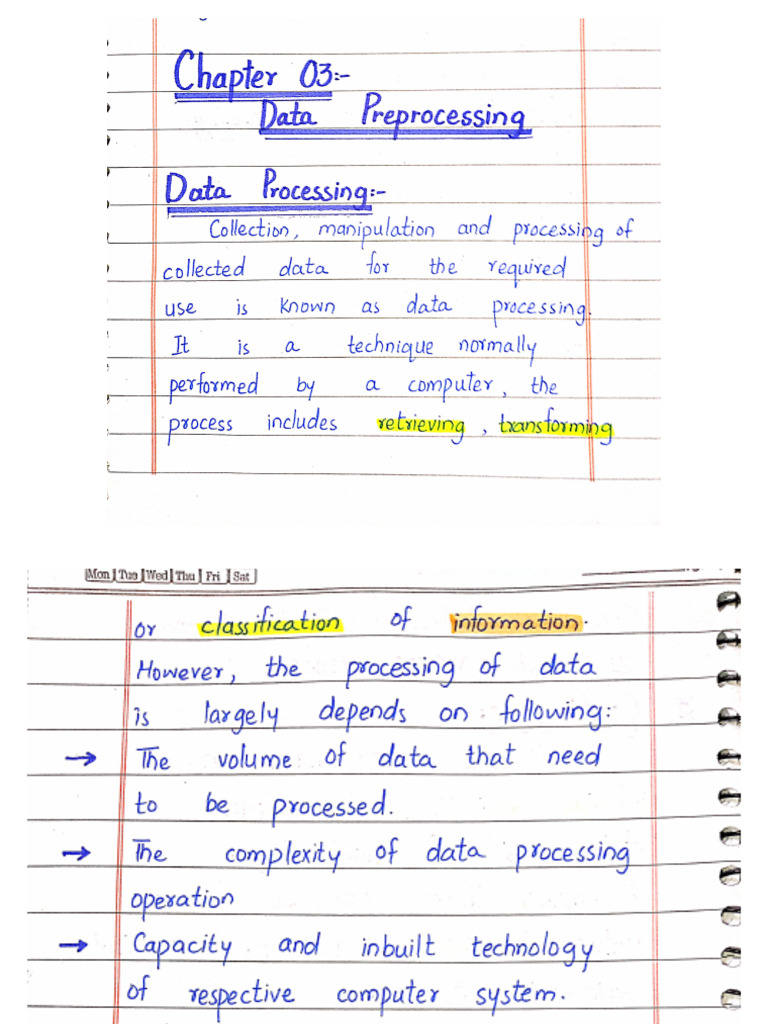 Chapter 03:-
Data Preprocessing
Data Processing:-
Collection, manipulation and processing of
collected data for the required
use is known as data processing.
It is a technique normally
performed by a computer, the
process includes retrieving, transforming
Mon Tue Wed Thu Fri Sat
or classification of information.
However, the processing of data
is largely depends on following:
→ The volume of data that need
to be processed.
→ The complexity of data processing
operation
→ Capacity and inbuilt technology
of respective computer system.